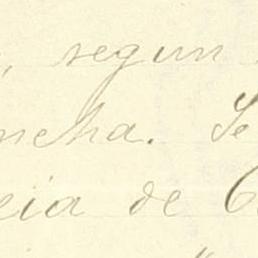 , segun
ncha. Se
eia de C